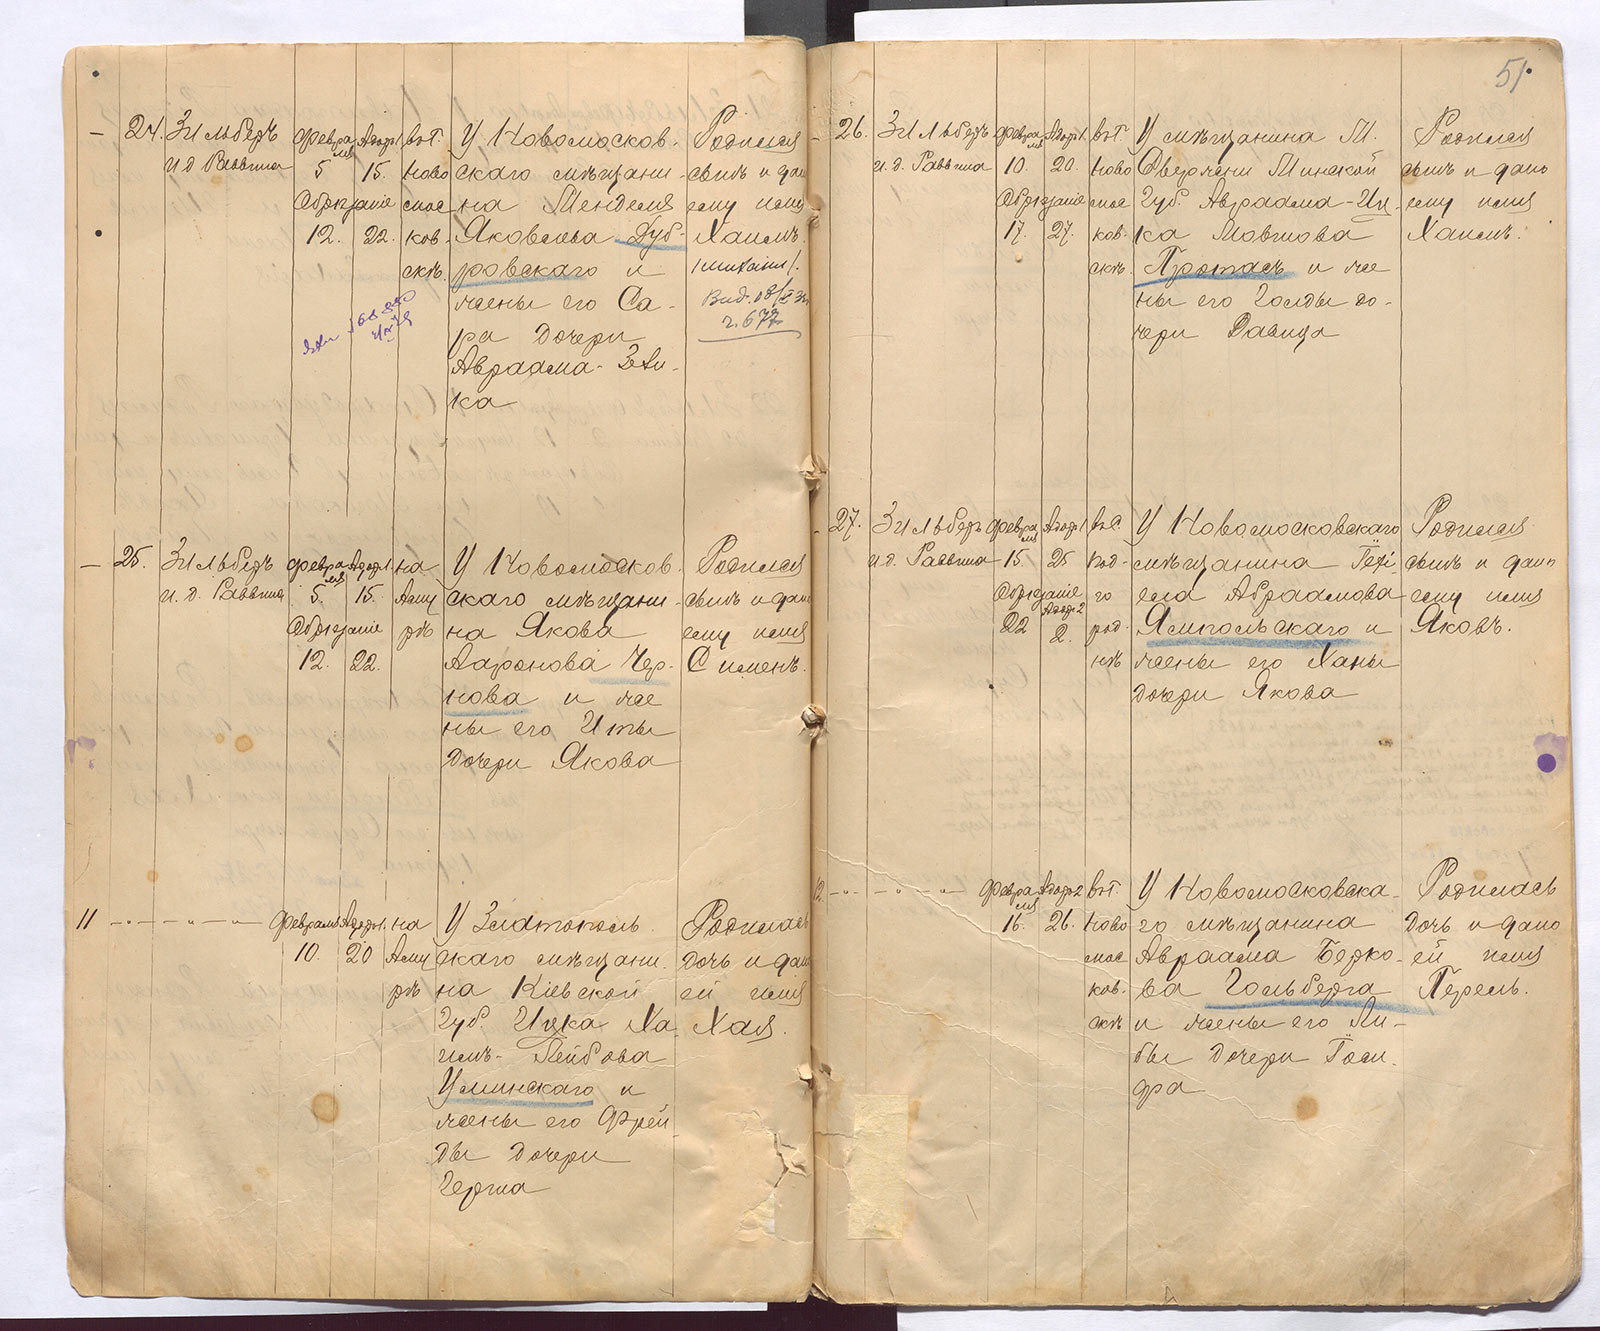 51.
24. Зильберъ
и д Раввина
Февра
ля
5
Адаръ 1.
15.
Обрѣзаніе
12. 22.
въ г.
Ново
мос
ков
скѣ.
У Новомосков-
скаго мѣщани-
на Менделя
Яковлева Дуб-
ровскаго и
жены его Са-
ра дочери
Авраама-Зели-
ка
Родился
сынъ и дано
ему имя
Хаимъ.
Вид.
г. 677
25. Зильберъ
и. д. Раввина
Февра
ля
5.
Адаръ 1.
15.
Обрѣзаніе
12. 22.
на
Аму
рѣ
У Новомосков-
скаго мѣщани-
на Якова
Ааронова Чер-
нова и же
ны его Иты
дочери Якова
Родился
сынъ и дано
ему имя
Сименъ.
11 — " — " — " —
Февраля
10.
Адаръ 1.
20
на
Аму
рѣ
У Златополь
скаго мѣщани
на Кіевской
Губ. Ицка Ха
имъ-Лейбова
Уминскаго и
жены его Фрей
ды дочери
Герша
Родилась
дочь и дано
ей имя
Хая.
26. Зильберъ
и. д. Раввина
Февра
ля
10.
Адаръ 1.
20.
Обрѣзаніе
17. 27.
въ г.
Ново
мос
ков-
скѣ.
У мѣщанина М.
Свержени Минской
Губ. Авраама-Иц
ка Мовшова
Протасъ и же
ны его Голды до-
чери Давида
Родился
сынъ и дано
ему имя
Хаимъ.
27. Зильберъ
и д. Раввина
Февра
ля
15.
Адаръ 1
25
Обрѣзаніе
22
Адаръ 2
2.
въ с.
Под-
го
род-
нѣ
У Новомосковскаго
мѣщанина Гехі-
ела Абраамова
Ямпольскаго и
жены его Ханы
дочери Якова
Родился
сынъ и дано
ему имя
Яковъ.
12. — " — " — " —
Февра
ля
16.
26.
въ г.
Ново
мос
ков-
скѣ
У Новомосковска-
го мѣщанина
Авраама Берко-
ва Гольберга
и жены его Ли-
бы дочери
Родилась
дочь и дано
ей имя
Перель.